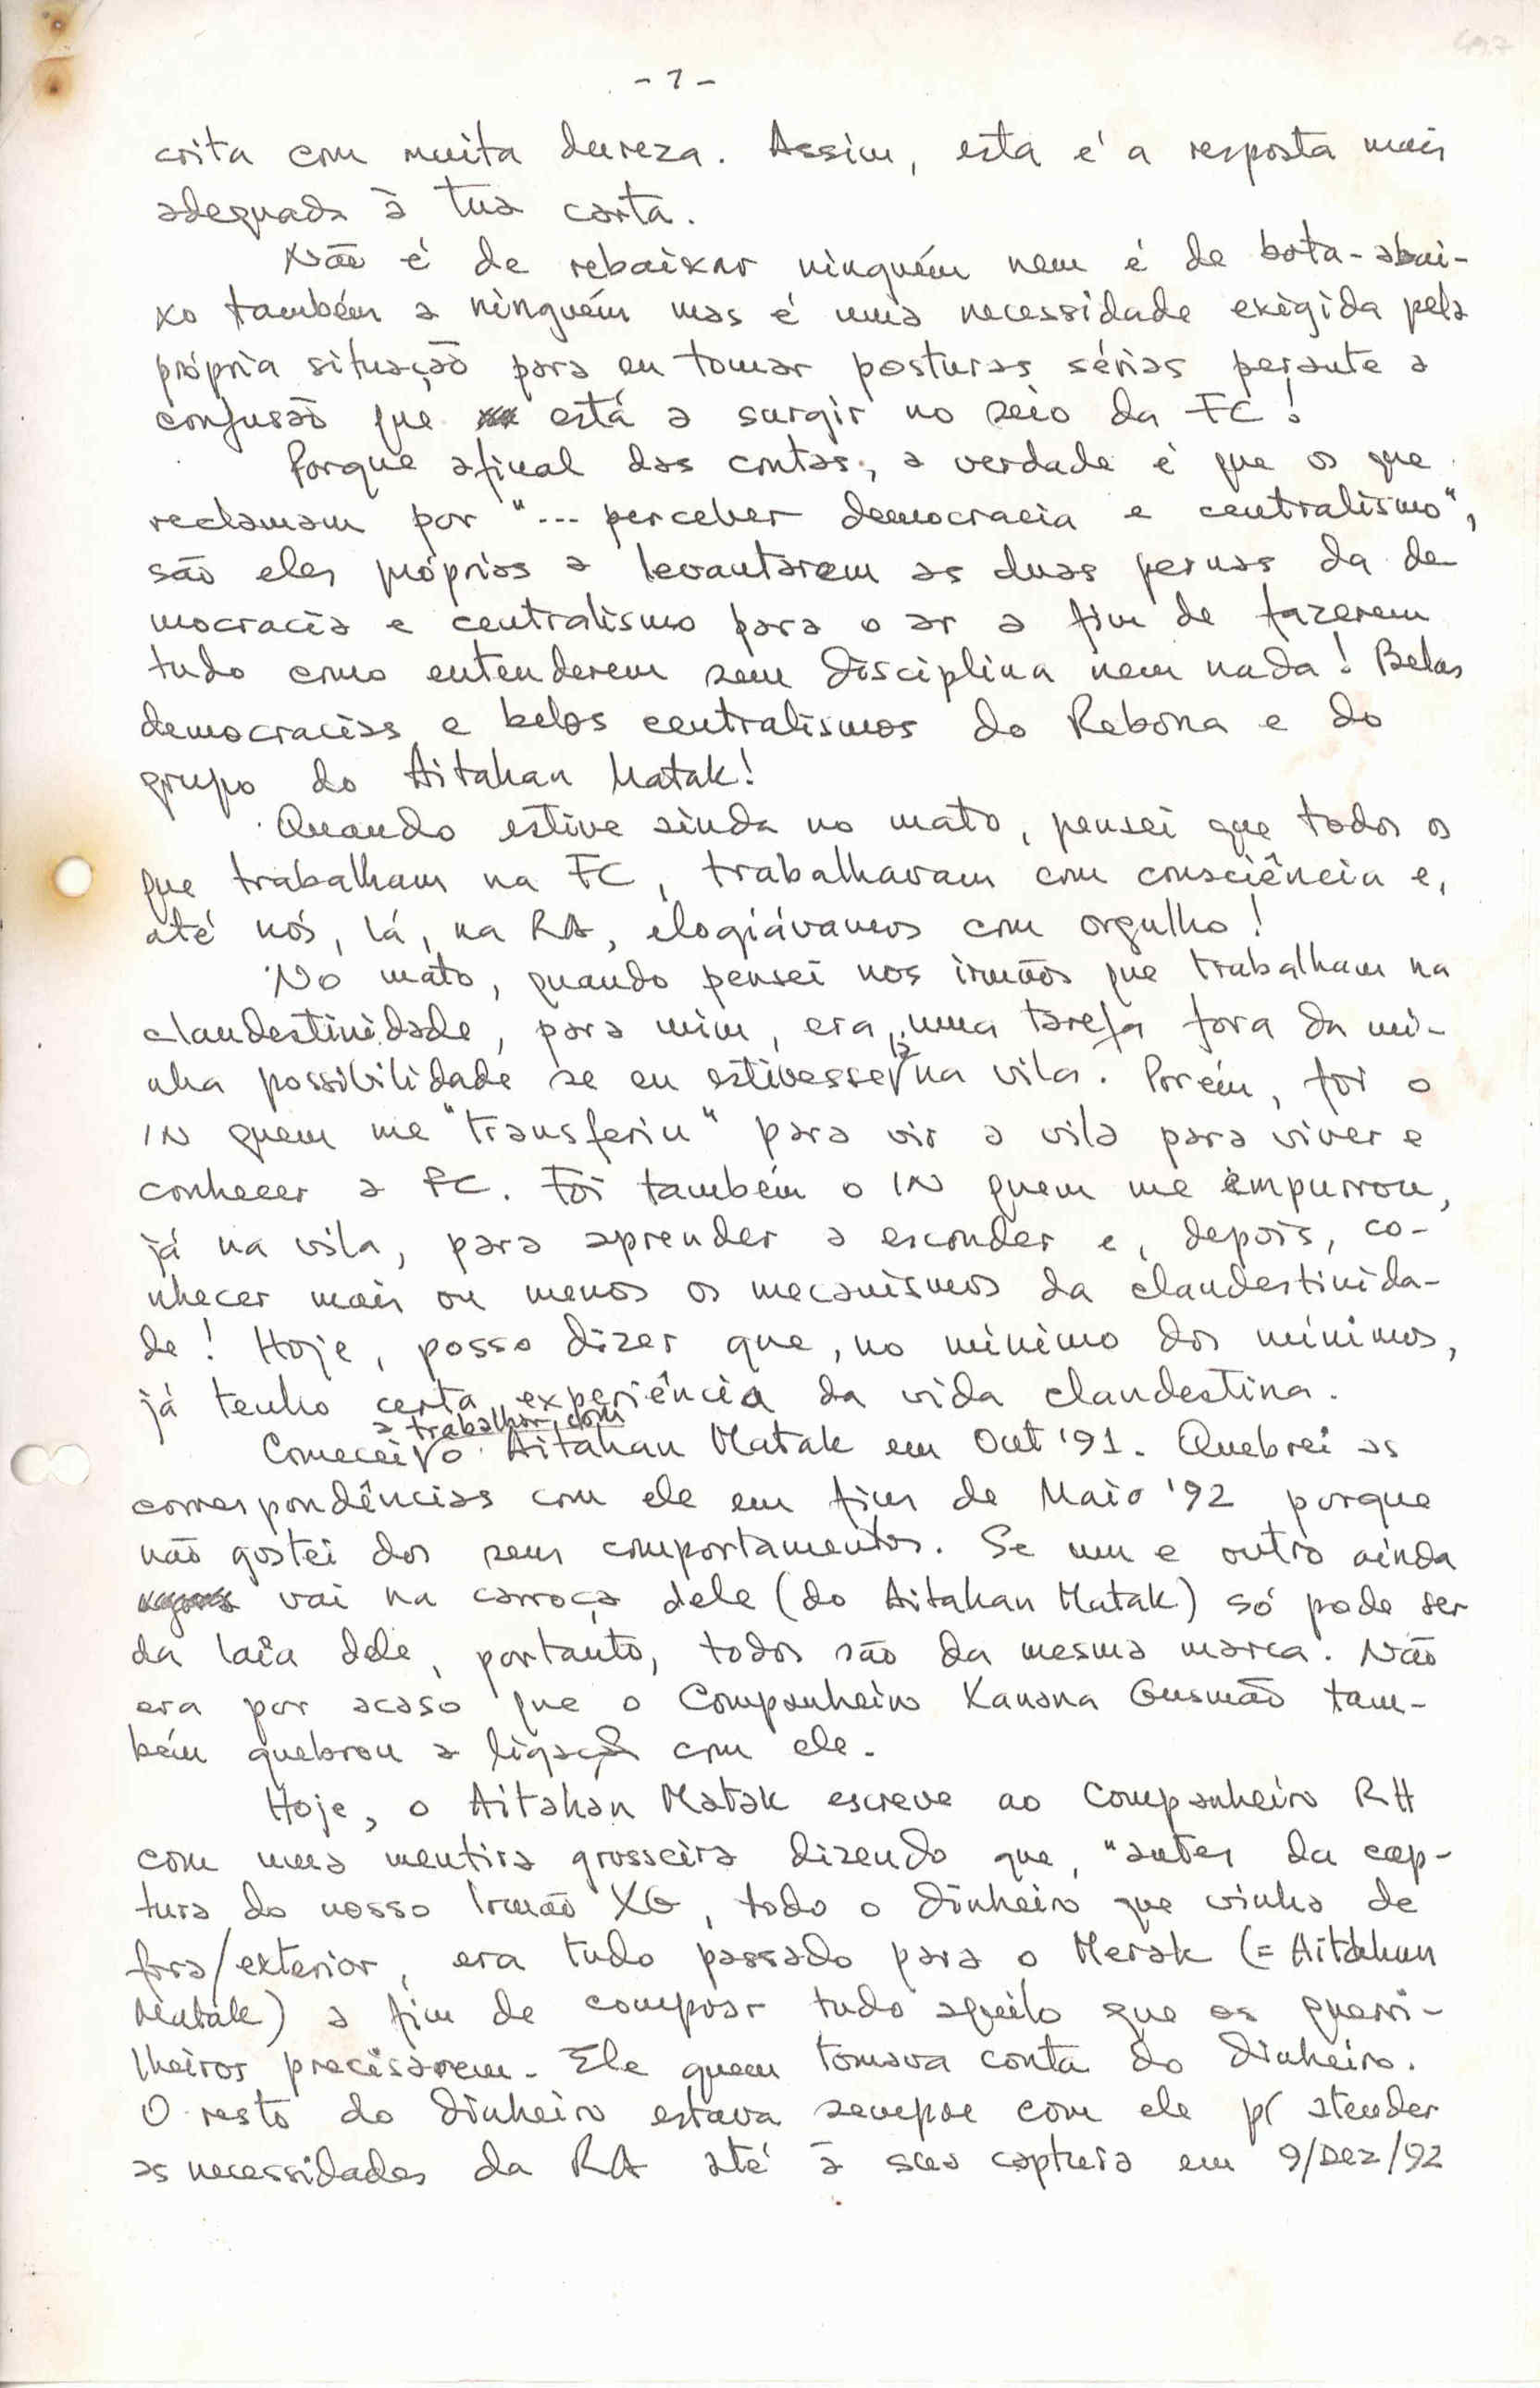 - 7 -
crita com muita dureza. Assim, esta é a resposta mais
adequada à tua carta.
Não é de rebaixar ninguém nem é de bota-abai-
xo também a ninguém mas é uma necessidade exigida pela
própria situação para eu tomar posturas sérias perante a
confusão que está a surgir no seio da FC!
Porque afinal das contas, a verdade é que os que
reclamam por "... perceber democracia e centralismo",
são eles próprios a levantarem as duas pernas da de-
mocracia e centralismo para o ar a fim de fazerem
tudo como entenderem sem disciplina nem nada! Belas
democracias e belos centralismos do Rebona e do
grupo do Aitahan Matak!
Quando estive ainda no mato, pensei que todos os
que trabalham na FC, trabalhavam com consciência e,
até nós, lá, na RA, elogiávamos com orgulho!
No mato, quando pensei nos irmãos que trabalham na
clandestinidade, para mim, era uma tarefa fora da mi-
nha possibilidade se eu estivesse já na vila. Porém, foi o
IN quem me "transferiu" para vir a vila para viver e
conhecer a FC. Foi também o IN quem me empurrou,
já na vila, para aprender a esconder e, depois, co-
nhecer mais ou menos os mecanismos da clandestinida-
de! Hoje, posso dizer que, no mínimo dos mínimos,
já tenho certa experiência da vida clandestina.
Comecei a trabalhar com o Aitahan Matak em Out '91. Quebrei as
correspondências com ele em fins de Maio '92 porque
não gostei dos seus comportamentos. Se um e outro ainda
vai na carroça dele (do Aitahan Matak) só pode ser
da laia dele, portanto, todos são da mesma marca. Não
era por acaso que o Companheiro Kanana Gusmão tam-
bém quebrou a ligação com ele.
Hoje, o Aitahan Matak escreve ao Companheiro RH
com uma mentira grosseira dizendo que, "antes da cap-
tura do nosso Irmão XG, todo o dinheiro que vinha de
fora/exterior, era tudo passado para o Merak (= Aitahan
Matak) a fim de compoar tudo aquilo que os guerri-
lheiros precisarem. Ele quem tomava conta do dinheiro.
O resto do dinheiro estava sempre com ele p/ atender
as necessidades da RA até à sua captura em 9/Dez/92